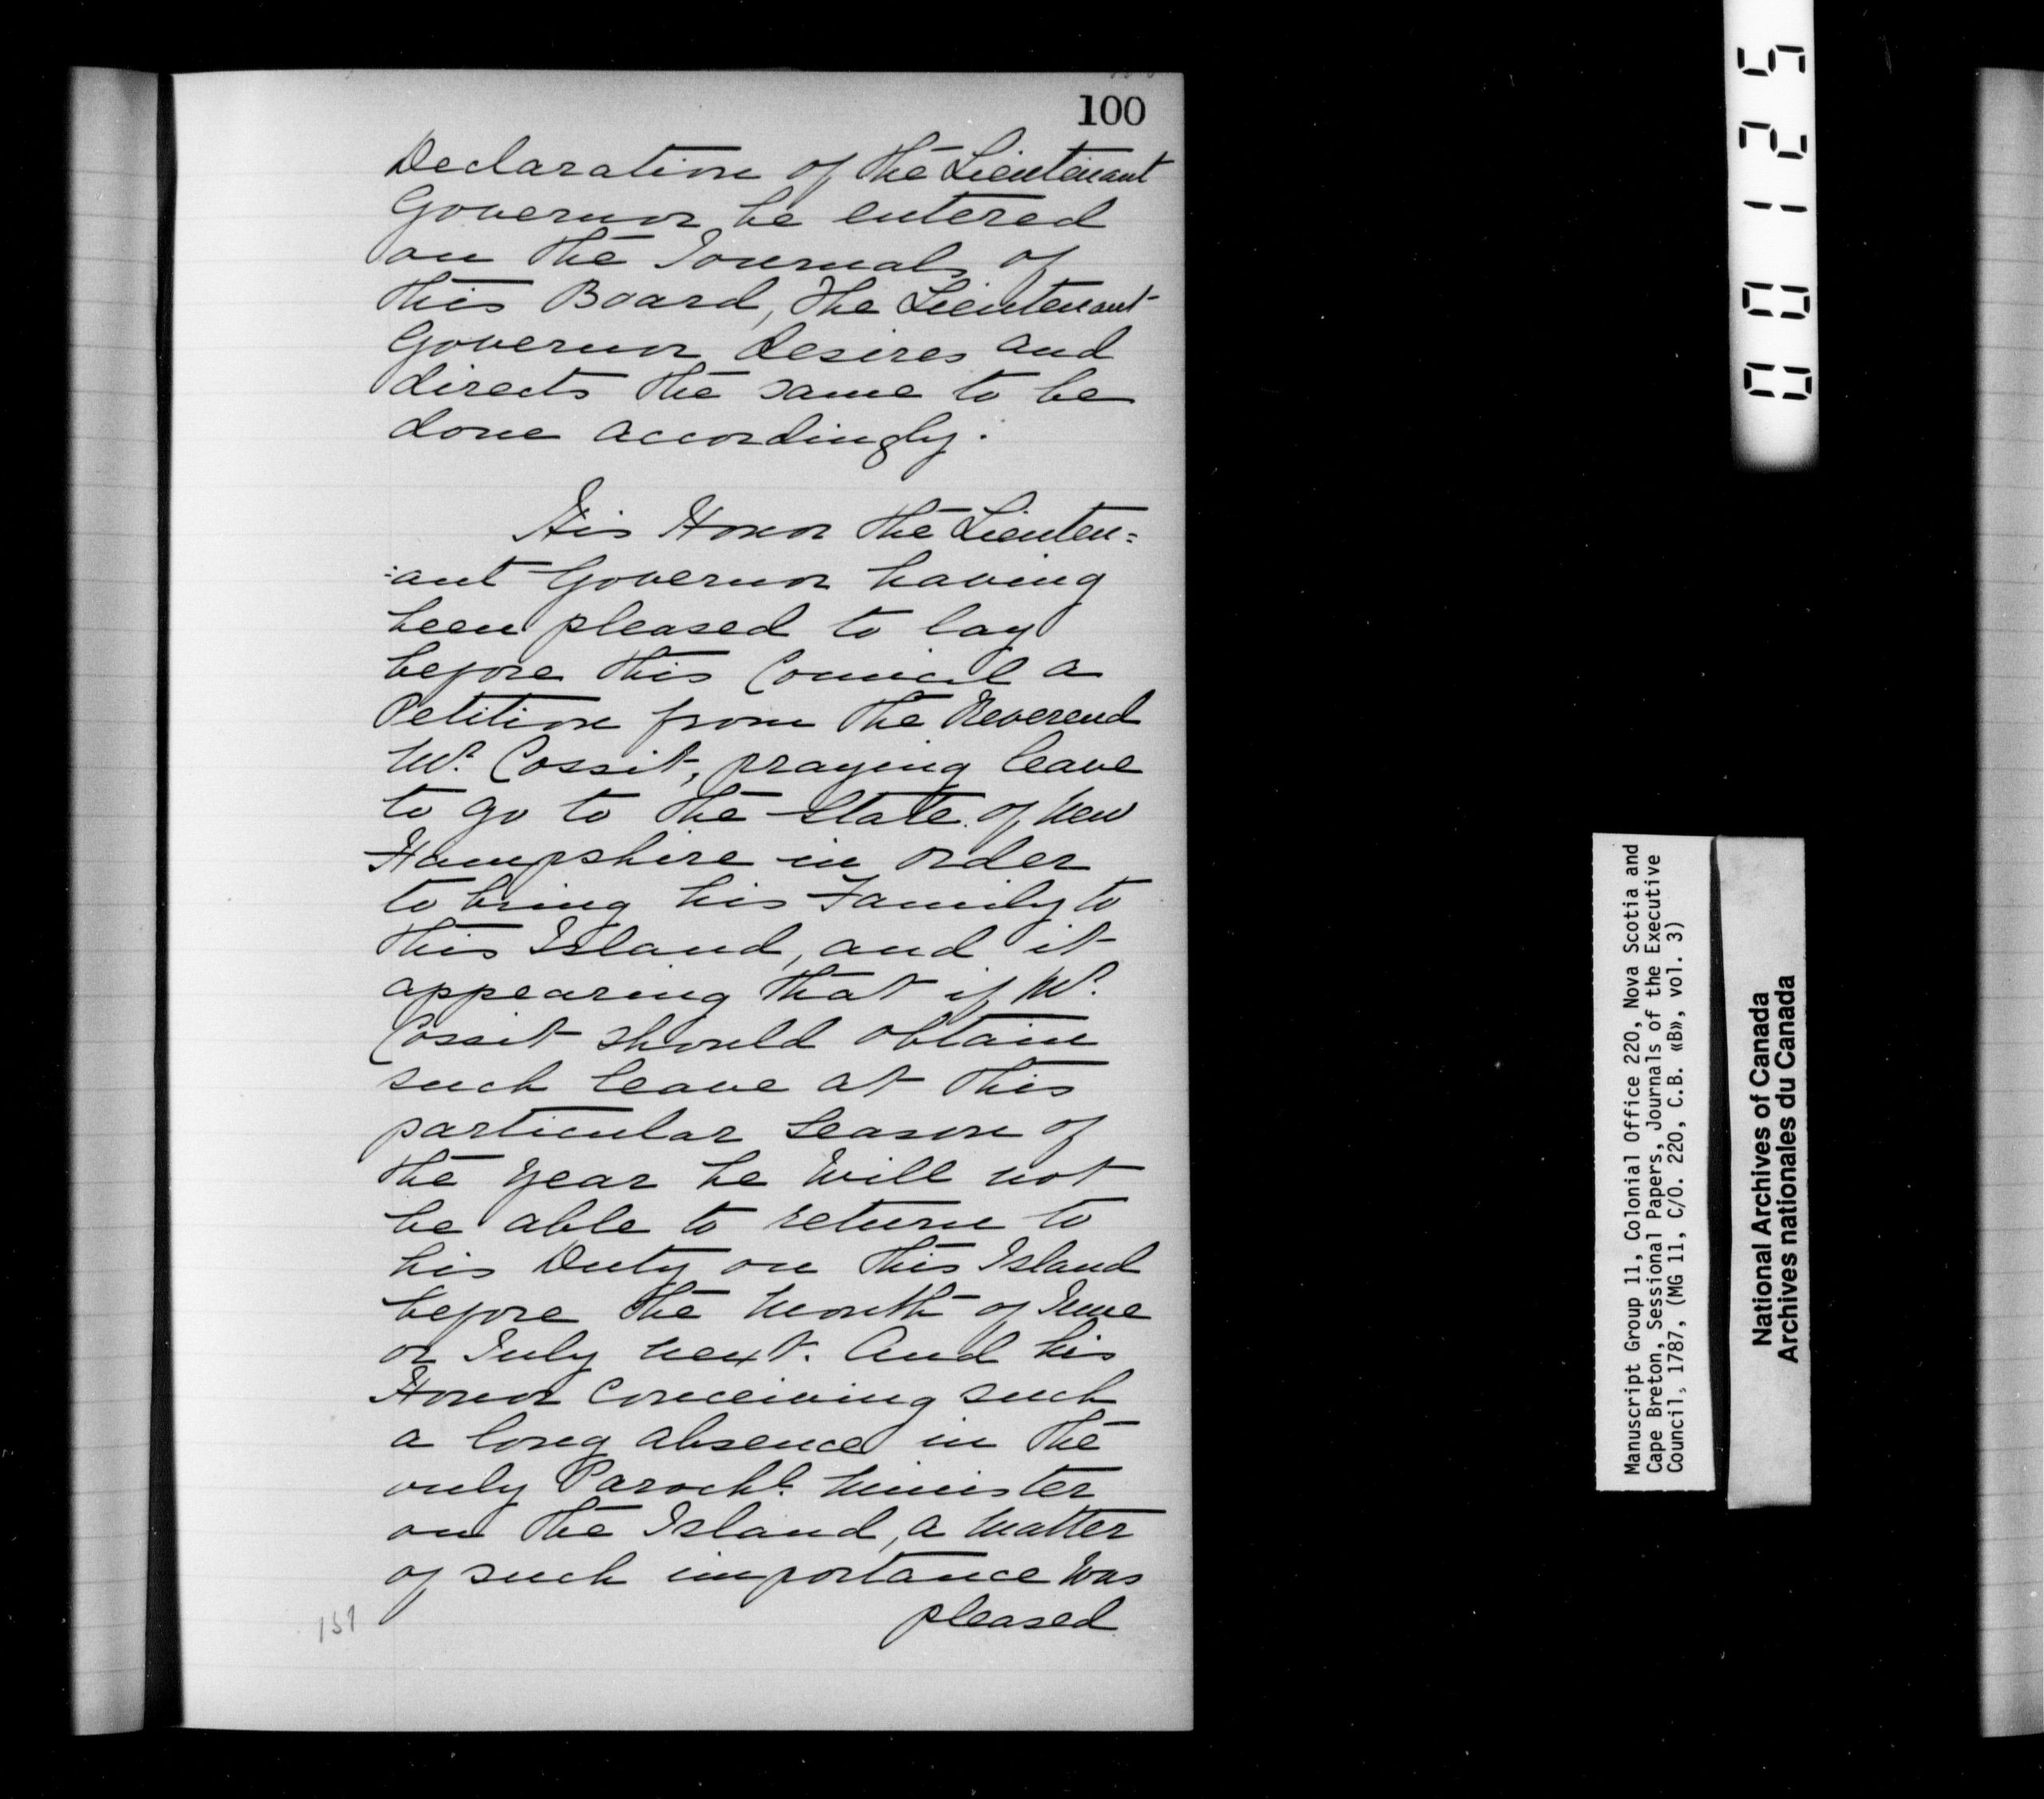 100
Declaration of the Lieutenant
Governor be entered
on the Journals of
this Board, the Lieutenant
Governor desires and
directs the same to be
done accordingly.
His Honor the Lieuten=
:ant Governor having
been pleased to lay
before this Council a
Petition from the Reverend
Mr. Cossit, praying leave
to go to the State of New
Hampshire in order
to bring his Family to
this Island, and it
appearing that if Mr.
Cossit should obtain
such leave at this
particular Season of
the Year he will not
be able to return to
his Duty on this Island
before the Month of June
or July next. And his
Honor conceiving such
a long absence in the
only Parochl. Minister
on the Island, a Matter
of such importance was
pleased
151
00125
Manuscript Group 11, Colonial Office 220, Nova Scotia and
Cape Breton, Sessional Papers, Journals of the Executive
Council, 1787, (MG 11, C/O. 220, C.B. «B», vol. 3)
National Archives of Canada
Archives nationales du Canada